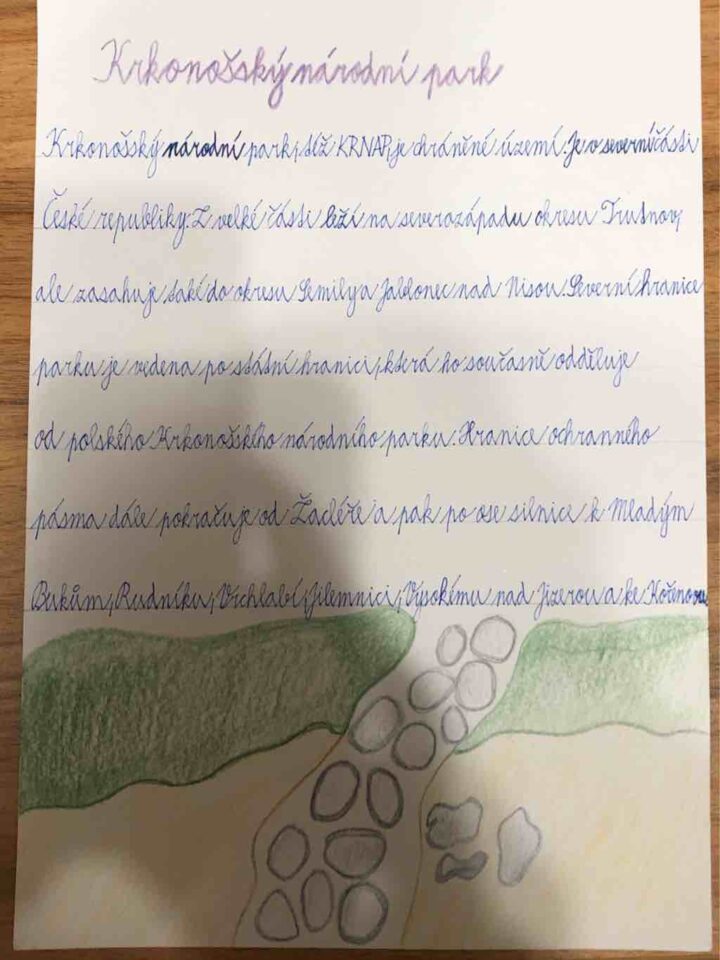 Krkonošský národní park
Krkonošský národní park, též KRNAP, je chráněné území. Je v severní části
České republiky. Z velké části leží na severozápadu okresu Trutnov,
ale zasahuje také do okresu Semily a Jablonec nad Nisou. Severní hranice
parku je vedena po státní hranici, která ho současně odděluje
od polského Krkonošského národního parku. Hranice ochranného
pásma dále pokračuje od Žacléře a pak po ose silnice k Mladým
Bukům, Rudníku, Vrchlabí, Jilemnici, Vysokému nad Jizerou a ke Kořenovu